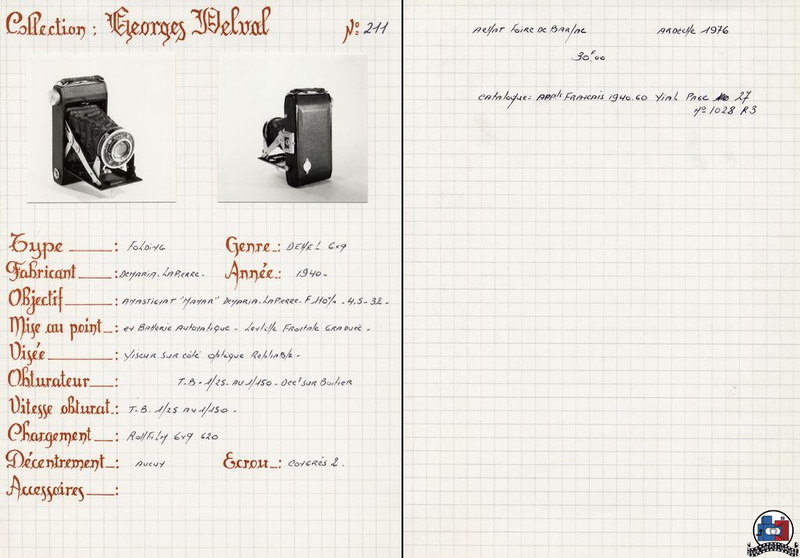 Collection : Georges Delval N° 211
Type : Folding Genre : DEHEL 6x9
Fabricant : DEMARIA.LAPIERRE. Année : 1940-
Objectif : ANASTIGMAT "MANAR" DEMARIA.LAPIERRE. F.110% - 4.5-32.
Mise au point : en Batterie Automatique - Lentille Frontale Graduée -
Visée : Viseur sur côté optique Repliable -
Obturateur : T.B. 1/25. AU 1/150 - Dect sur Boitier
Vitesse obturat : T.B. 1/25 AU 1/150 -
Chargement : RollFilm 6x9 620
Décentrement : AUCUN Ecrou : CONGRÈS 2.
Accessoires :
ACHAT FOIRE DE BARJAC ARDECHE 1976
30F,00
Catalogue: APPls FRANCAIS 1940.60 Vial Page 27
N° 1028 R3